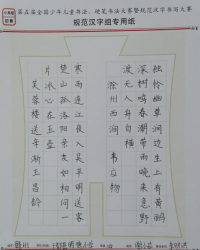 第五届全国少年儿童书法、硬笔书法大赛暨规范汉字书写大赛
规范汉字组专用纸
独怜幽草涧边生上有黄鹂
深树鸣春潮带雨晚来急野
渡无人舟自横
滁州西涧 韦应物
寒雨连江夜入吴平明送客
楚山孤洛阳亲友如相问一
片冰心在玉壶
芙蓉楼送辛渐王昌龄